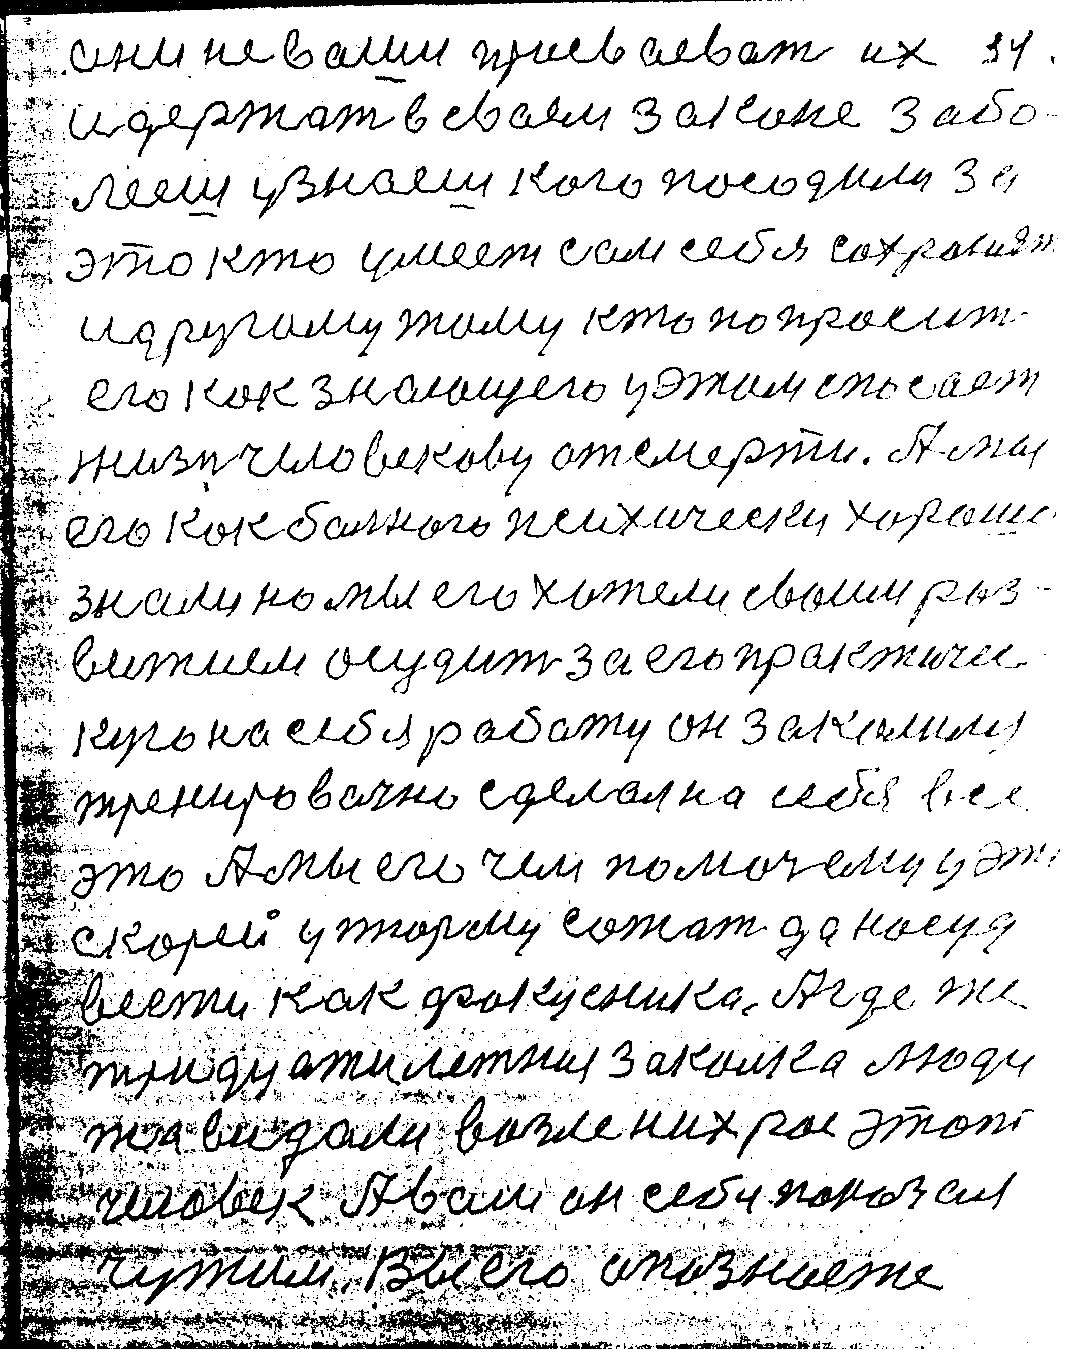 они не ваши присваеват их 34.
и держат в сваем законе забо-
лееш узнаеш кого посодили за
это кто умеет сам себя сохранят
и другому тому кто попросит
его как знающего у этом спасает
жизн человекову от смерти. А мы
его как болного психически хорошо
знали но мы его хотели своим раз-
витием осудит за его практиче
кую на себя работу он закалиля
тренировачно сделал на себя все
это А мы его чем поможем у эт
скорей у тюрму сожат да на суд
вести как фокусника. А где же
тридцатилетняя закалка люди
та видали возле них рос этот
человек А вам он себя показал
чужим. Вы его опознаете